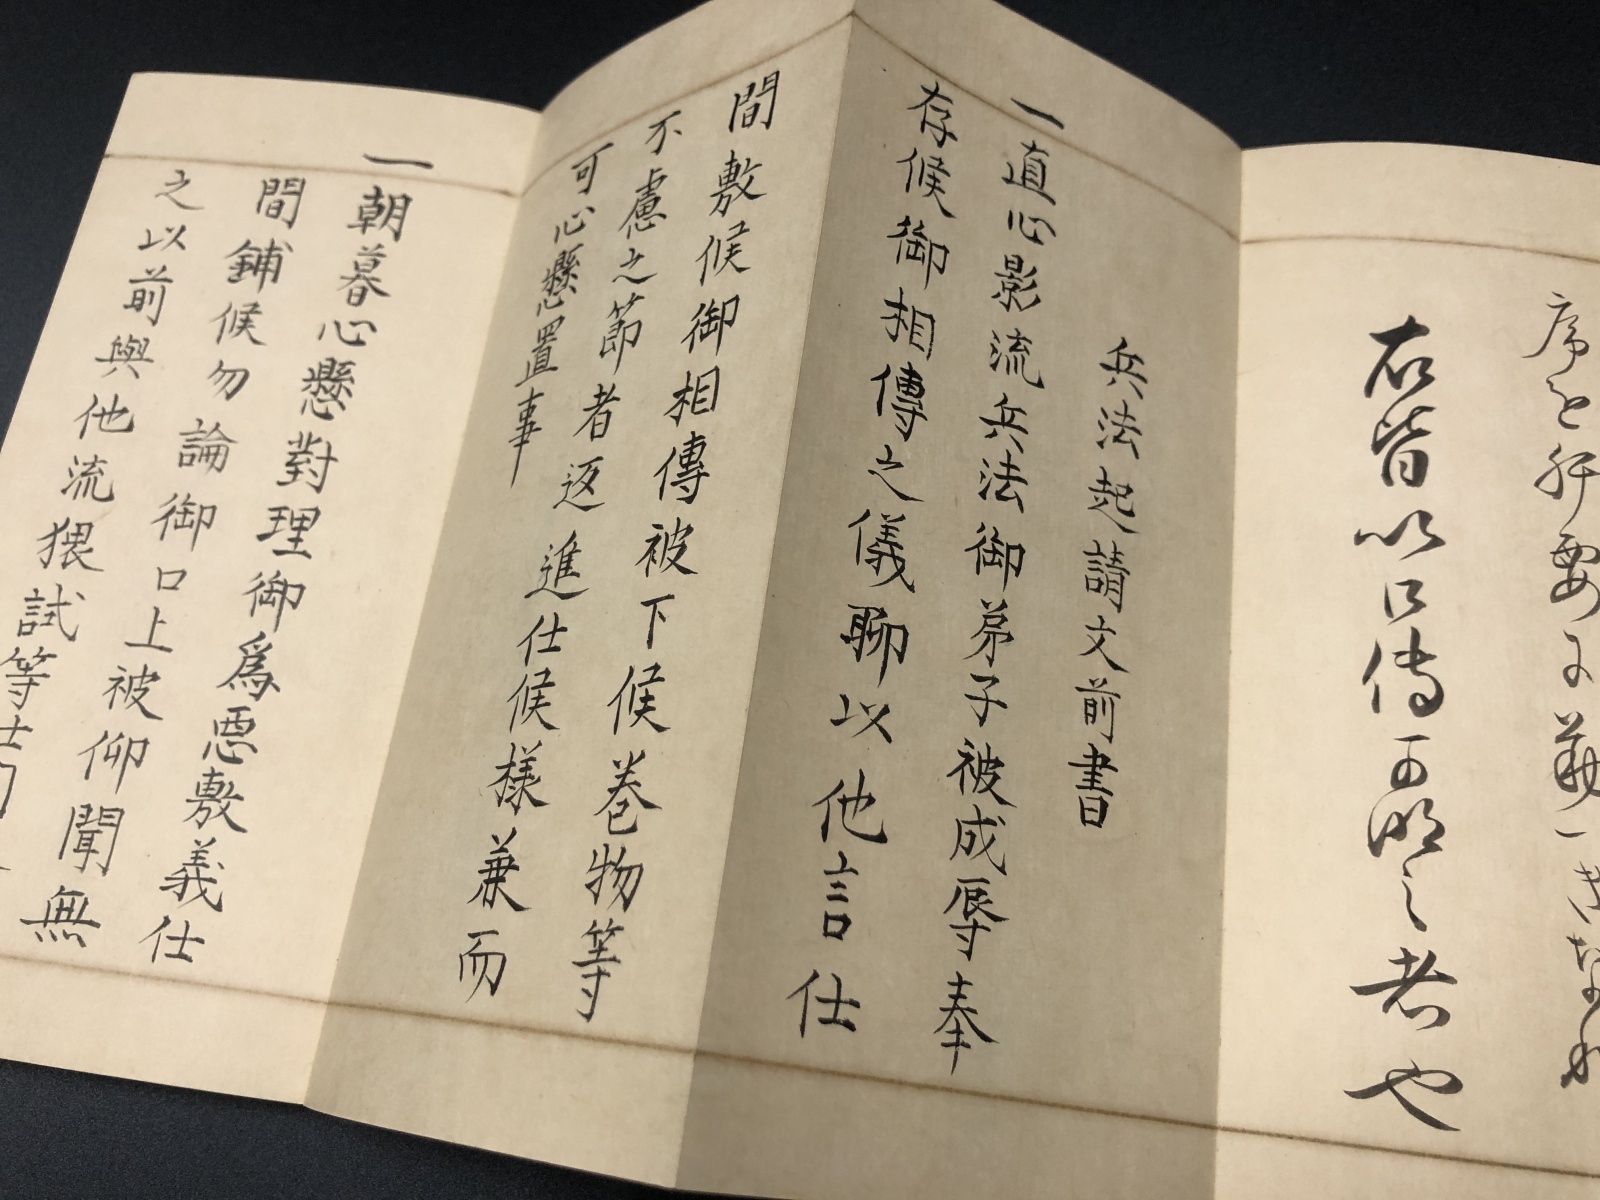 序を肝要に
右皆以口傳可明之者也
兵法起請文前書
一直心影流兵法御弟子被成辱奉
存候御相傳之儀聊以他言仕
間敷候御相傳被下候巻物等
不慮之節者返進仕候様兼而
可心懸置事
一朝暮心懸對理御為悪敷義仕
間鋪候勿論御口上被仰聞無
之以前與他流猥試等仕